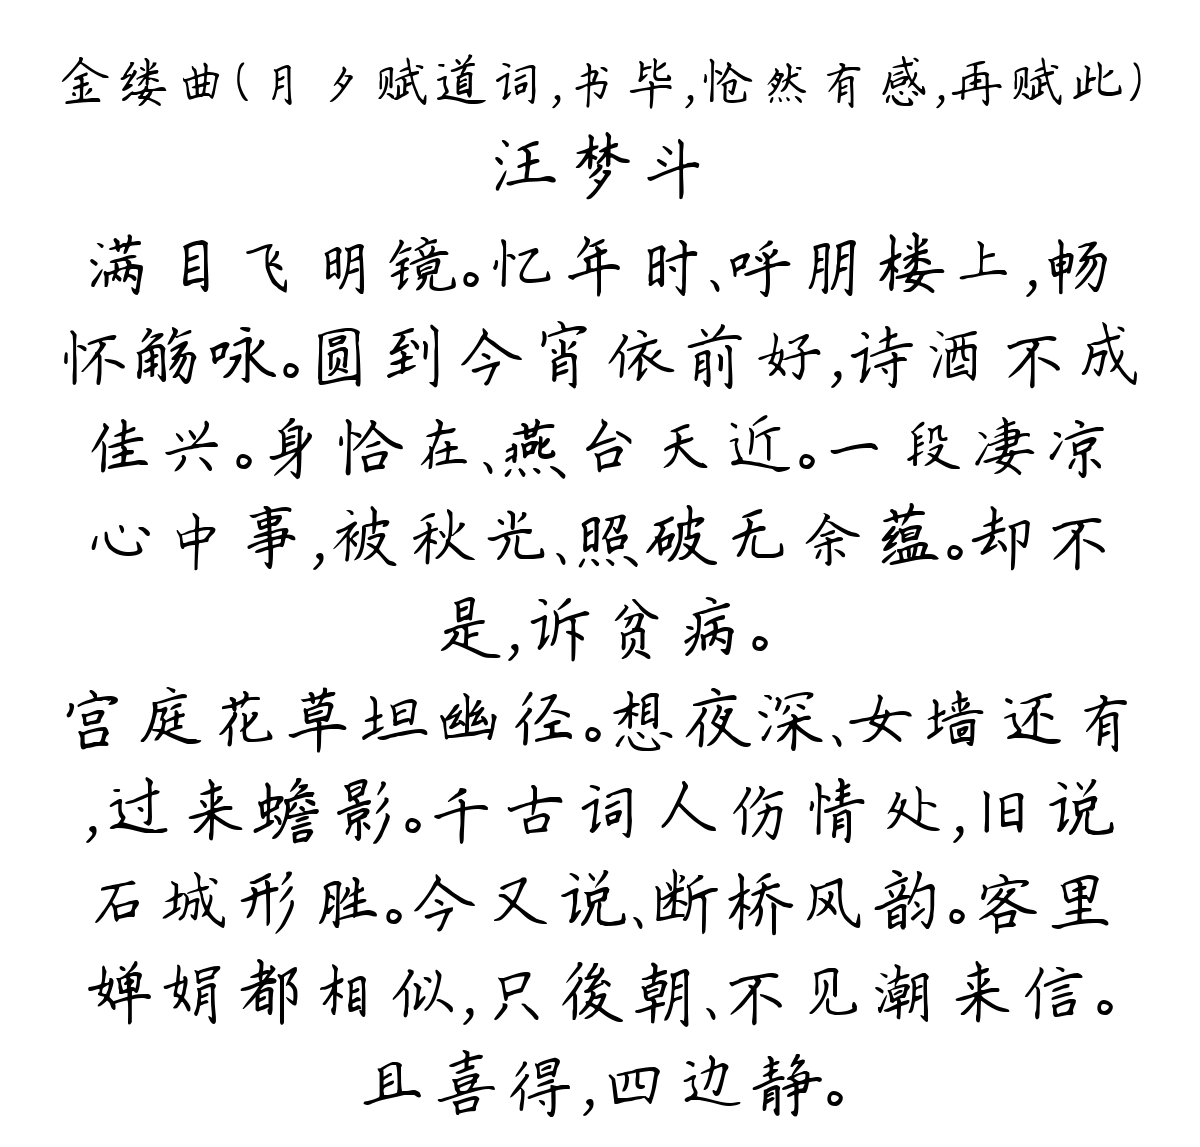 金缕曲(月夕赋道词,书毕,怆然有感,再赋此)
汪梦斗
满目飞明镜。忆年时、呼朋楼上,畅
怀觞咏。圆到今宵依前好,诗酒不成
佳兴。身恰在、燕台天近。一段凄凉
心中事,被秋光、照破无余蕴。却不
是,诉贫病。
宫庭花草坦幽径。想夜深、女墙还有
,过来蟾影。千古词人伤情处,旧说
石城形胜。今又说、断桥风韵。客里
婵娟都相似,只後朝、不见潮来信。
且喜得,四边静。